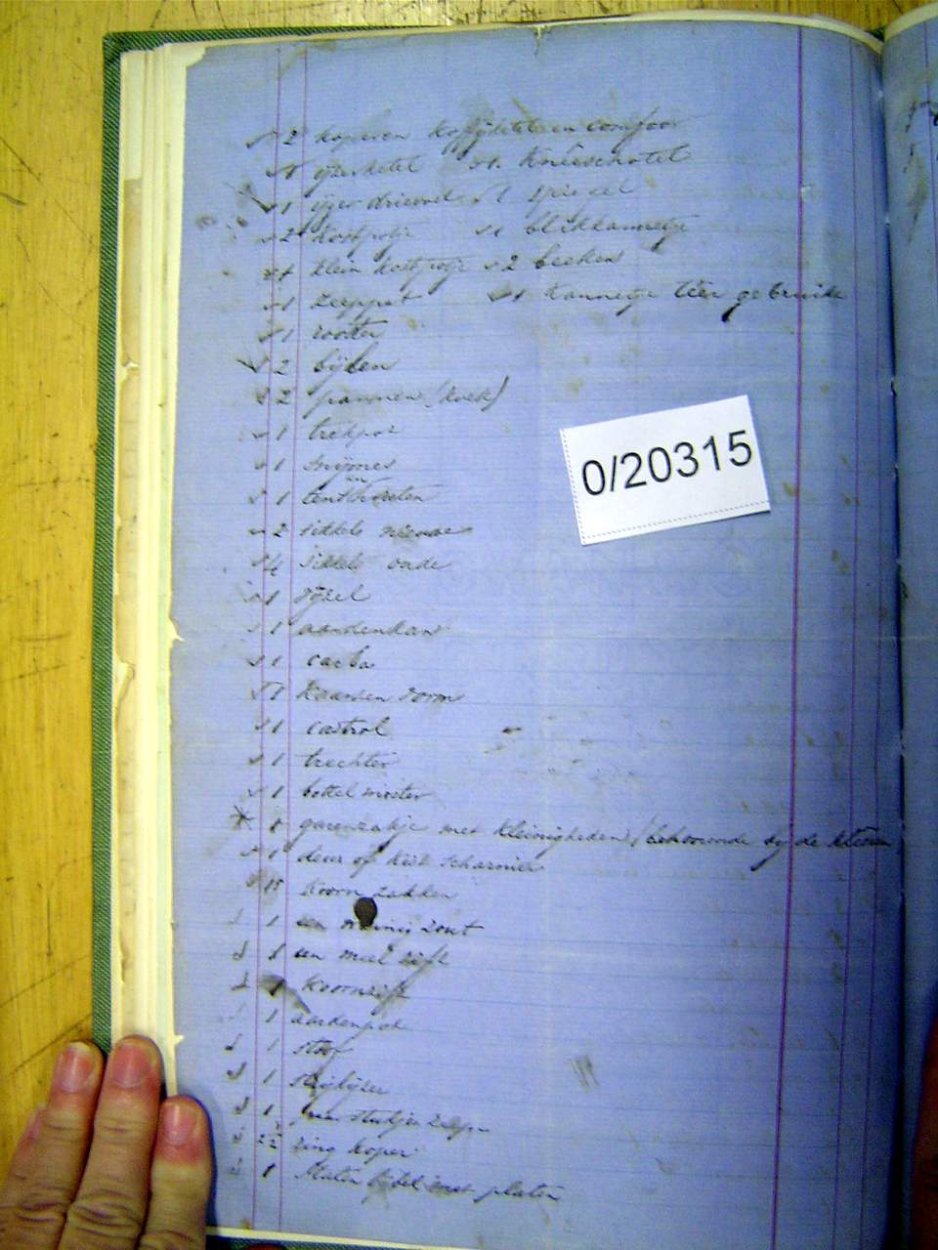 2 koperen koffijketel en comfoor
1 ijzerketel 1 Kneeschotel
1 ijzer drievoet 1 spiegel
2 kookpotje 1 blikkannetje
1 klein kookpotje 2 bekens
1 zeeppot 1 kannetje teer gebruike
1 rooster
2 bijlen
2 pannen (koek)
1 trekpot
1 snijmes
1 tent
2 sikkels nieuwe
4 sikkels oude
1 vijzel
1 aardenkan
1 carba
1 Kaarsen vorm
1 castrol
1 trechter
1 bottel moster
garenzakje met kleinigheden / behoorende bij de
1 deur of kist scharnier
15 koorn zakken
1 een zout
1 een meel zift
1 koornzift
1 aardenpot
1 stoof
1 strijkijzer
1 stukjen zeep
ring koper
1 Staten bijbel met platen
0/20315